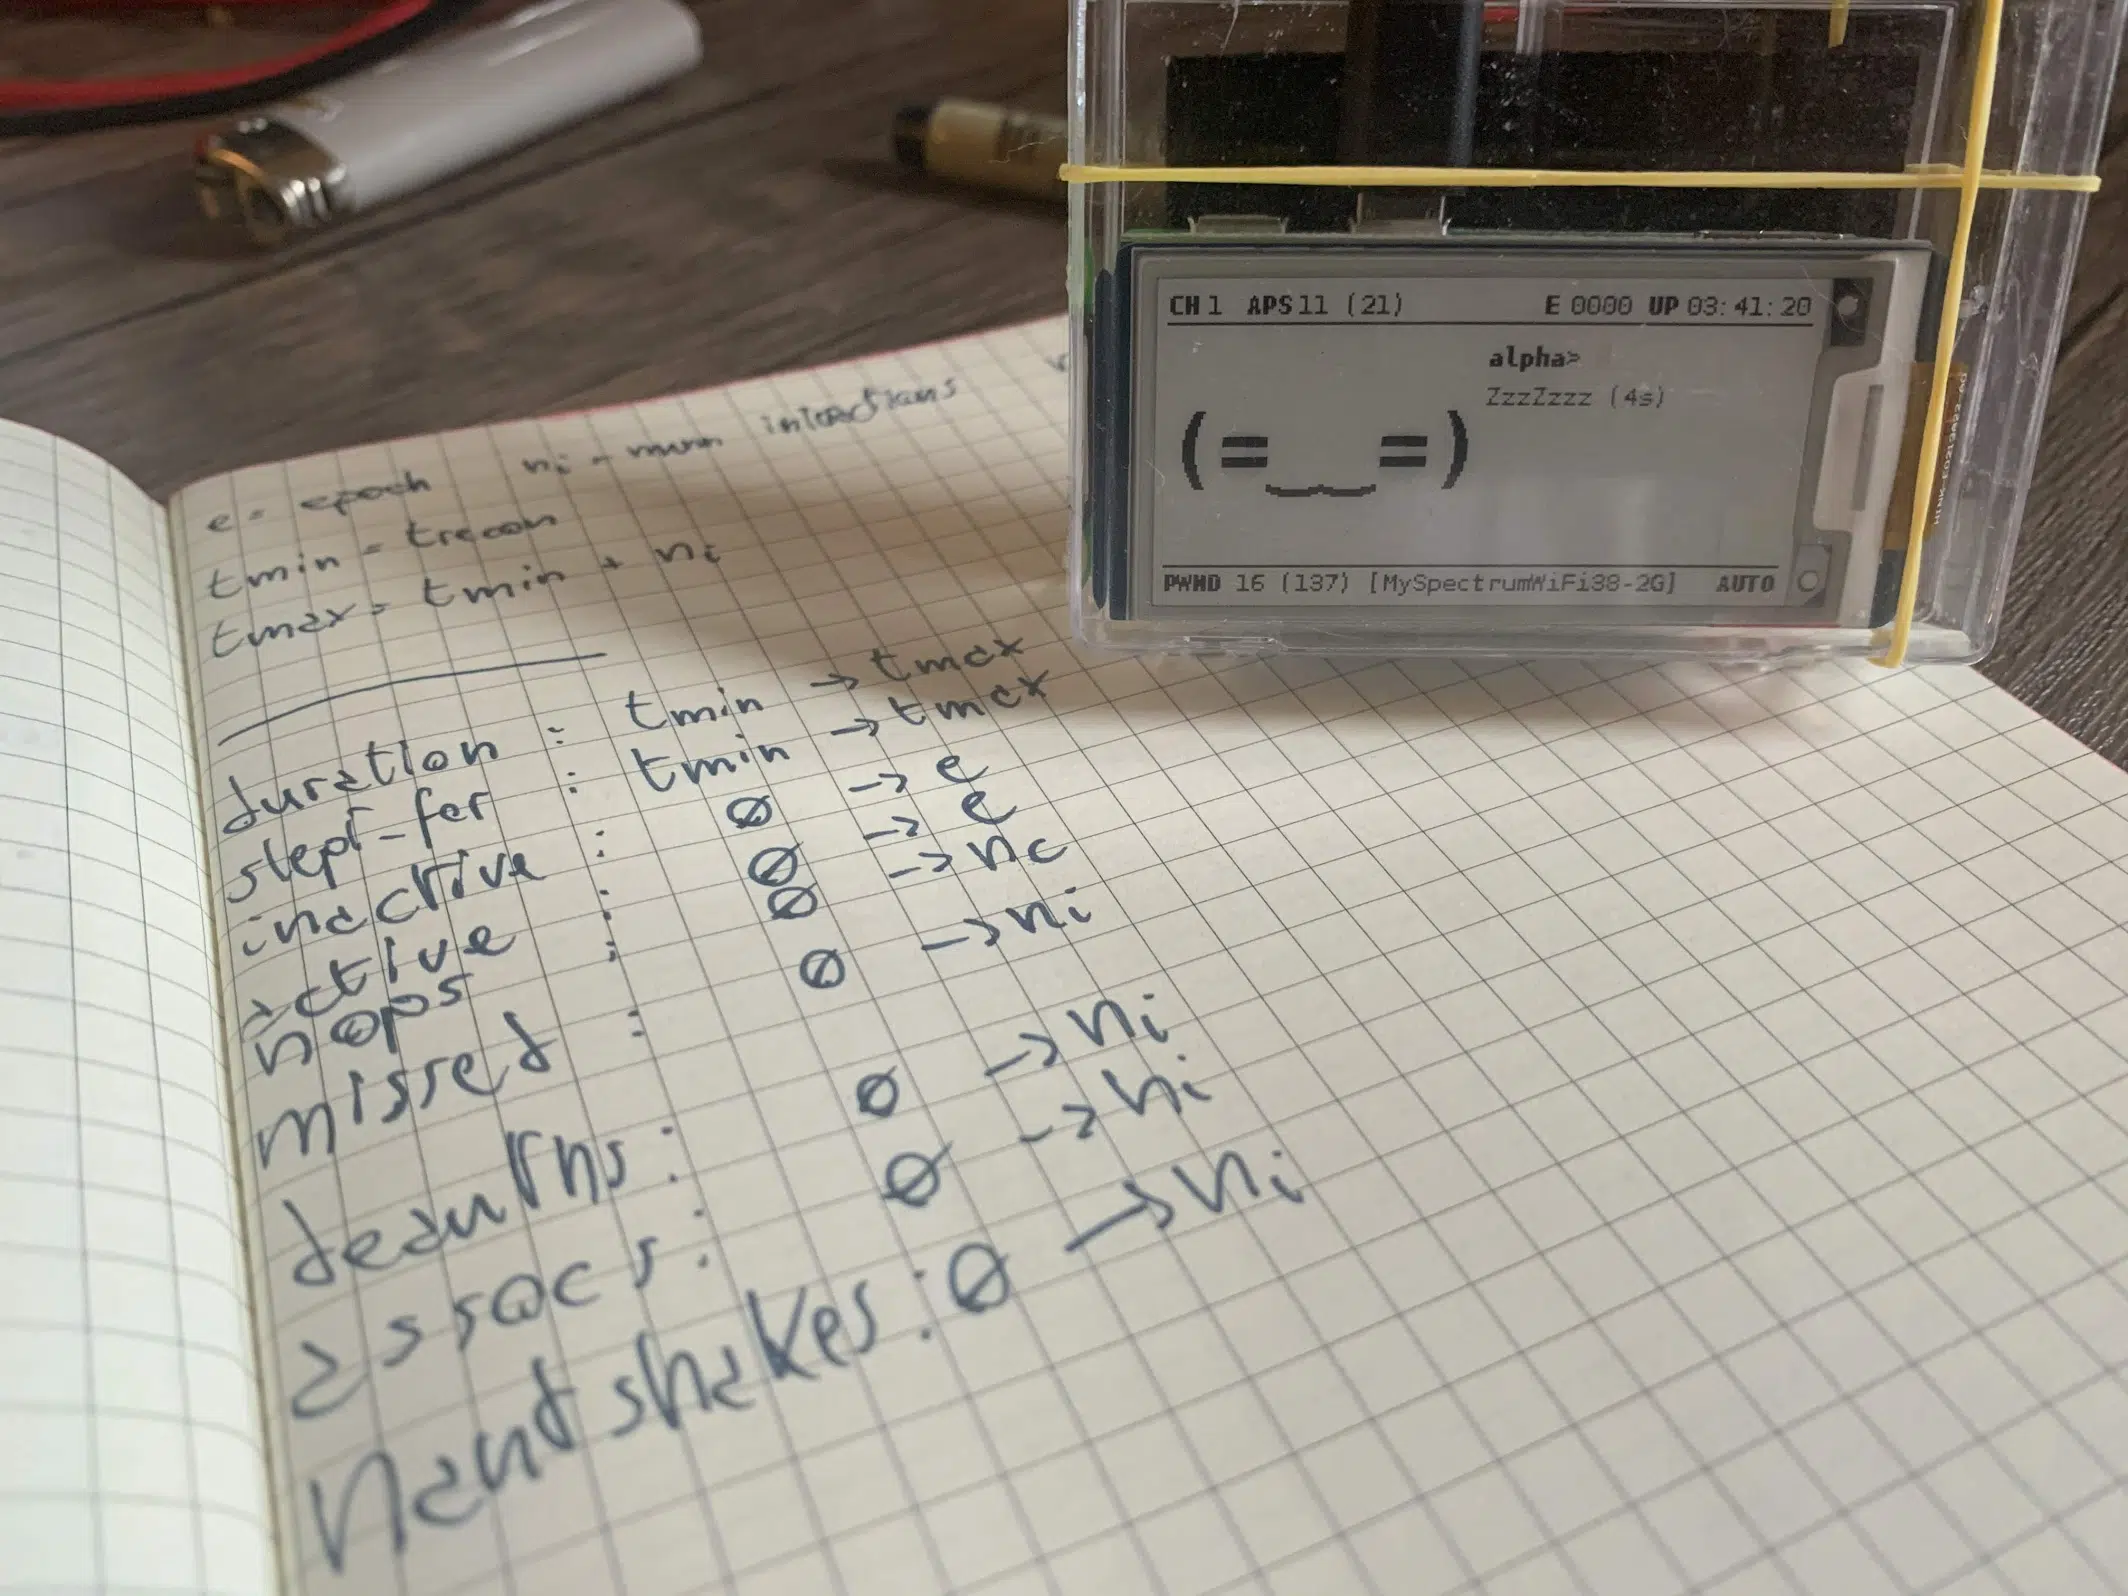 CH 1 APS 11 (21) E 0000 UP 03:41:20
alpha>
ZzzZzzz (4s)
(=‿‿=)
PWND 16 (137) [MySpectrumWiFi38-2G] AUTO
e = epoch ni = num interactions
tmin = trecon
tmax = tmin + ni
duration : tmin -> tmax
slept-for : tmin -> tmax
inactive : 0 -> e
active : 0 -> e
nops : 0 -> nc
missed : 0 -> ni
deauths : 0 -> ni
assocs : 0 -> ni
handshakes : 0 -> ni